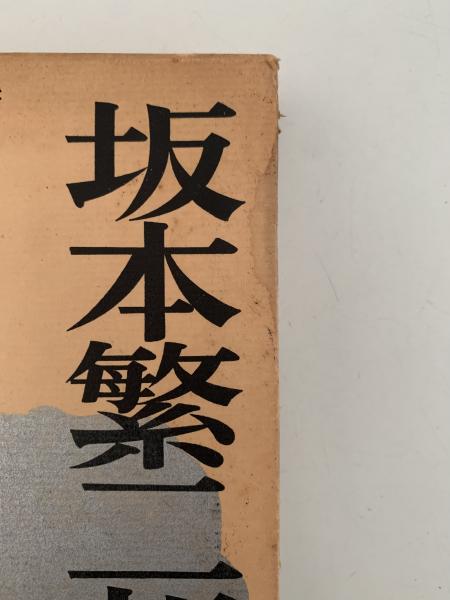 坂本繁二